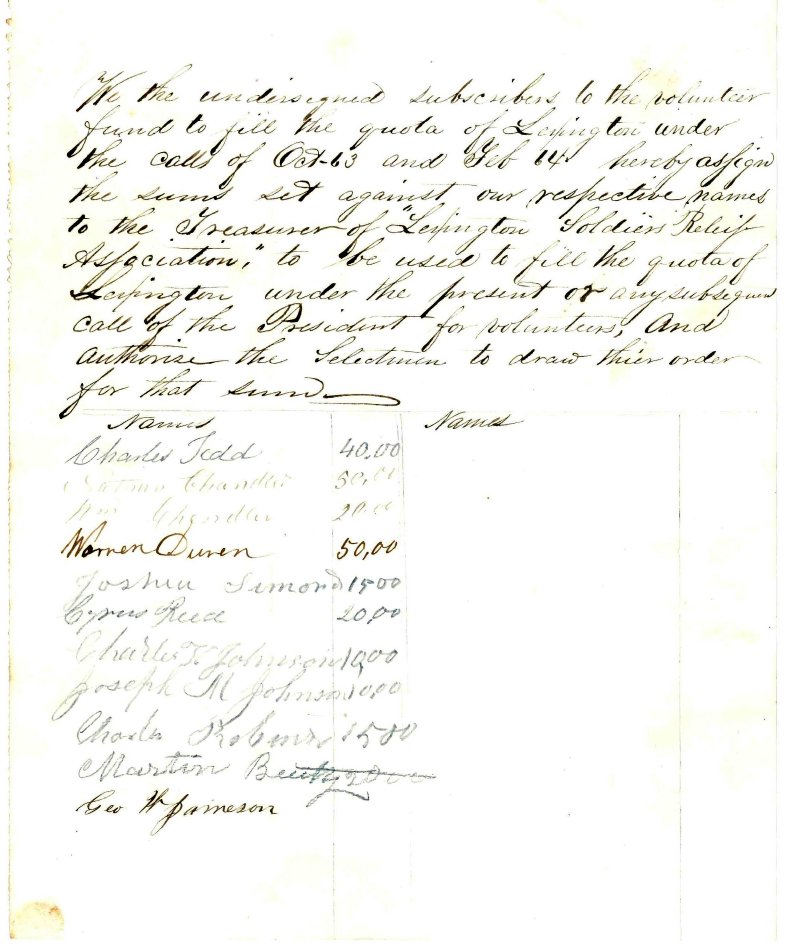 We the undersigned subscribers to the volunteer
fund to fill the quota of Lexington under
the calls of Oct-63 and Feb 64. hereby assign
the sums set against our respective names
to the Treasurer of "Lexington Soldiers Relief
Association," to be used to fill the quota of
Lexington under the present or any subsequen
call of the President for volunteers, And
authorise the Selectmen to draw thier order
for that sum
Names Names
Charles Tedd 40,00
Chandler 50,00
Wm Chandler 20.00
Warren Duren 50,00
Joshua Simond 1500
Cyrus Reed 20,00
Charles T. Johnson 10,00
Joseph M Johnson 10,00
Charles Robinson 1500
Martin 2000
Geo W Jameson